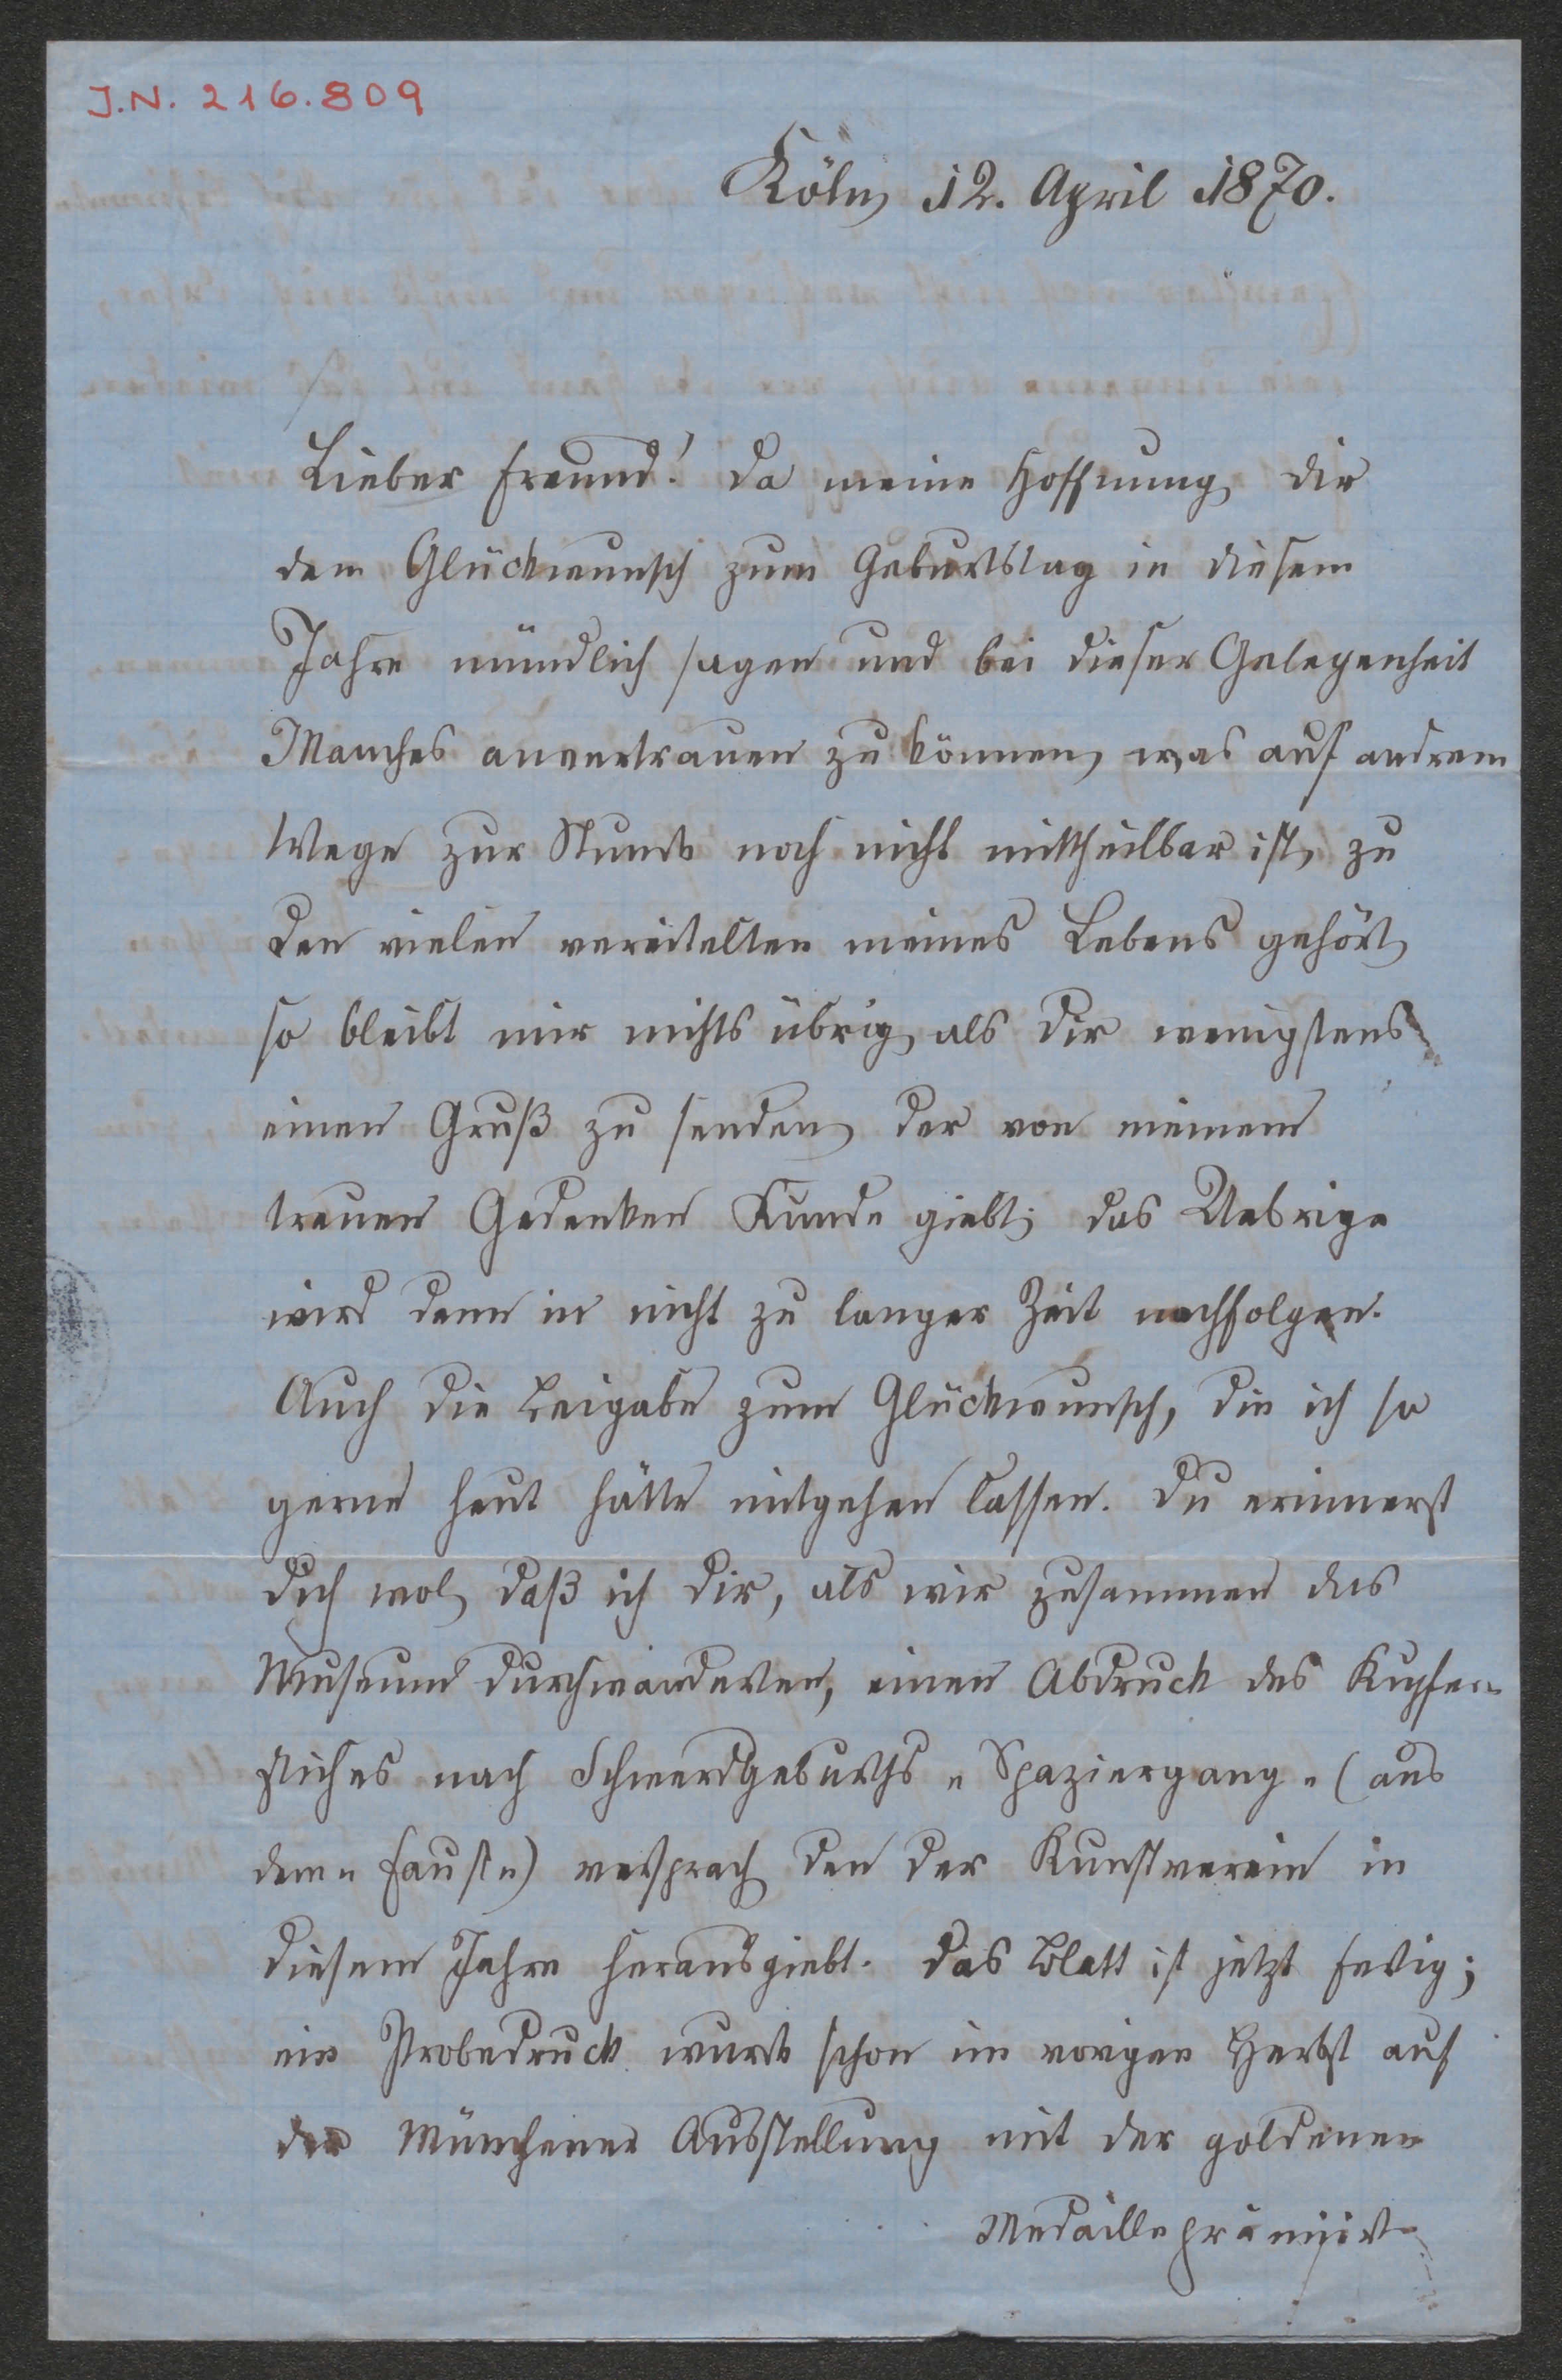 J.N. 216.809
Köln, 12. April 1870.
Lieber Freund! Da meine Hoffnung, Dir
den Glückwunsch zum Geburtstag in diesem
Jahre mündlich sagen und bei dieser Gelegenheit
Manches anvertrauen zu können, was auf andrem
Wege zur Stunde noch nicht mittheilbar ist, zu
den vielen vereitelten meines Lebens gehört,
so bleibt mir nichts übrig, als Dir wenigstens
einen Gruß zu senden, der von meinem
treuen Gedenken Kunde giebt; das Uebrige
wird denn in nicht zu langer Zeit nachfolgen.
Auch die Beigabe zum Glückwunsch, die ich so
gerne heut hätte mitgehen lassen. Du erinnerst
Dich wol, daß ich Dir, als wir zusammen das
Museum durchwanderten, einen Abdruck des Kupfer-
stiches nach Schwerdgeburths „Spaziergang“ (aus
dem „Faust“) versprach, den der Kunstverein in
diesem Jahre herausgiebt. Das Blatt ist jetzt fertig;
ein Probedruck wurde schon im vorigen Herbst auf
der Münchener Ausstellung mit der goldenen
Medaille prämiirt